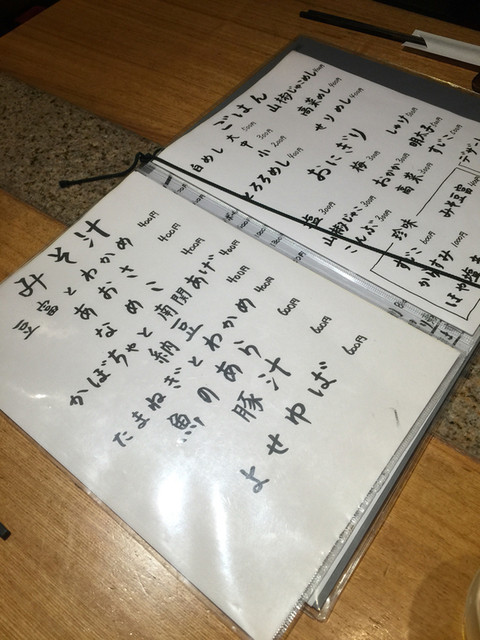 みそ汁
豆富とわかめ 400円
あおさ 400円
なめこ 400円
かぼちゃと南関あげ 400円
納豆 400円
たまねぎとわかめ 400円
魚のあら 600円
豚汁 600円
よせゆば 600円
ごはん
白めし 大
中 300円
小 200円
とろろめし 400円
山椒じゃこめし
高菜めし 400円
せりめし 400円
おにぎり
塩 300円
梅 300円
しゃけ
山椒じゃこ 300円
おかか 300円
明太子
こんぶ 300円
高菜 300円
すじこ
珍味
すじこ 600円
みそ豆富 400円
からすみ